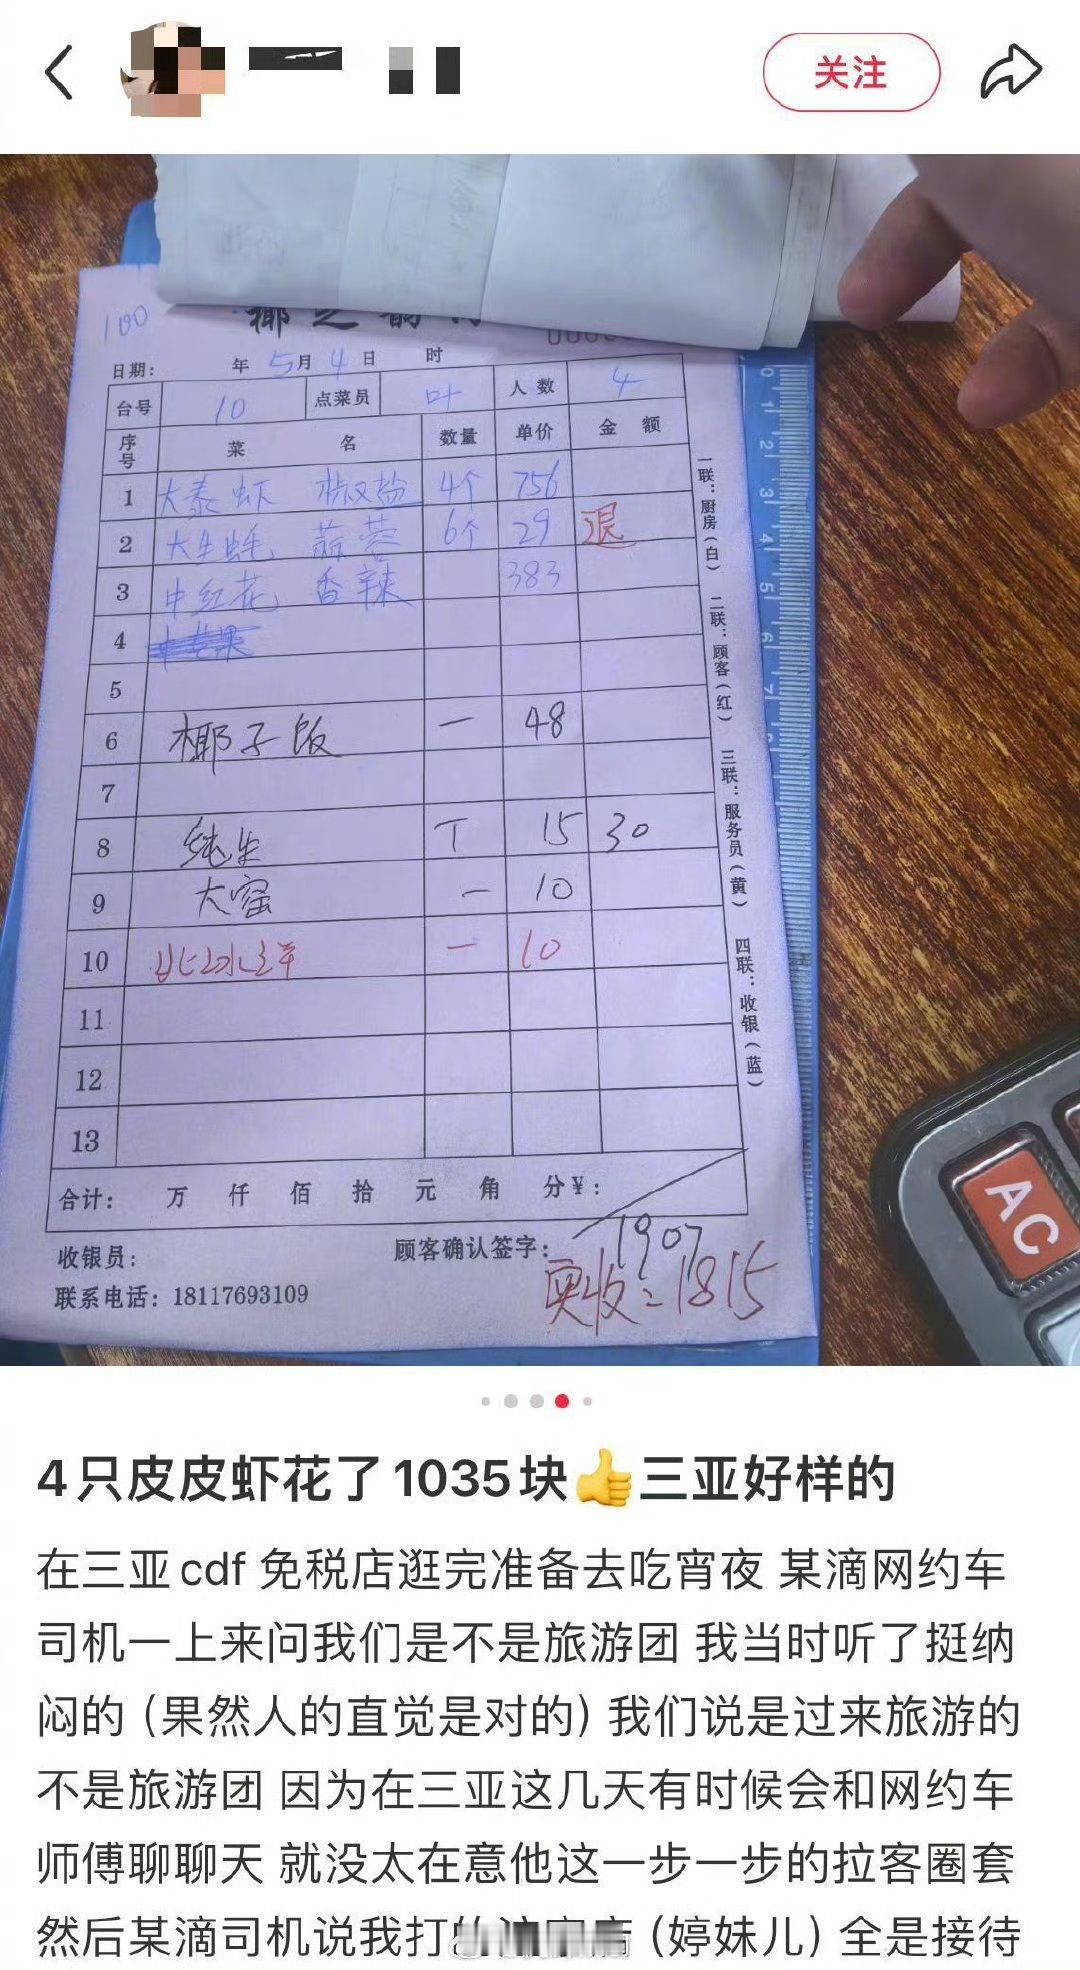 关注
100
椰之韵
日期： 年5月4日 时
台号 10 点菜员 叶 人数 4
序号 菜名 数量 单价 金额
1 大泰虾 椒盐 4个 756
2 大生蚝 蒜蓉 6个 29 退
3 中红花 香辣 383
4
5
6 椰子饭 一 48
7
8 纯生 T 15 30
9 大窑 一 10
10 北冰洋 一 10
11
12
13
合计： 万 仟 佰 拾 元 角 分¥：
1907
收银员： 顾客确认签字：
实收：1815
联系电话：18117693109
一联：厨房（白） 二联：顾客（红） 三联：服务员（黄） 四联：收银（蓝）
0 1 2 3 4 5 6 7
AC
4只皮皮虾花了1035块👍三亚好样的
在三亚cdf 免税店逛完准备去吃宵夜 某滴网约车
司机一上来问我们是不是旅游团 我当时听了挺纳
闷的（果然人的直觉是对的）我们说是过来旅游的
不是旅游团 因为在三亚这几天有时候会和网约车
师傅聊聊天 就没太在意他这一步一步的拉客圈套
然后某滴司机说我打的（婷妹儿）全是接待